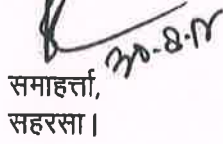 30-8-18
समाहर्त्ता,
सहरसा।